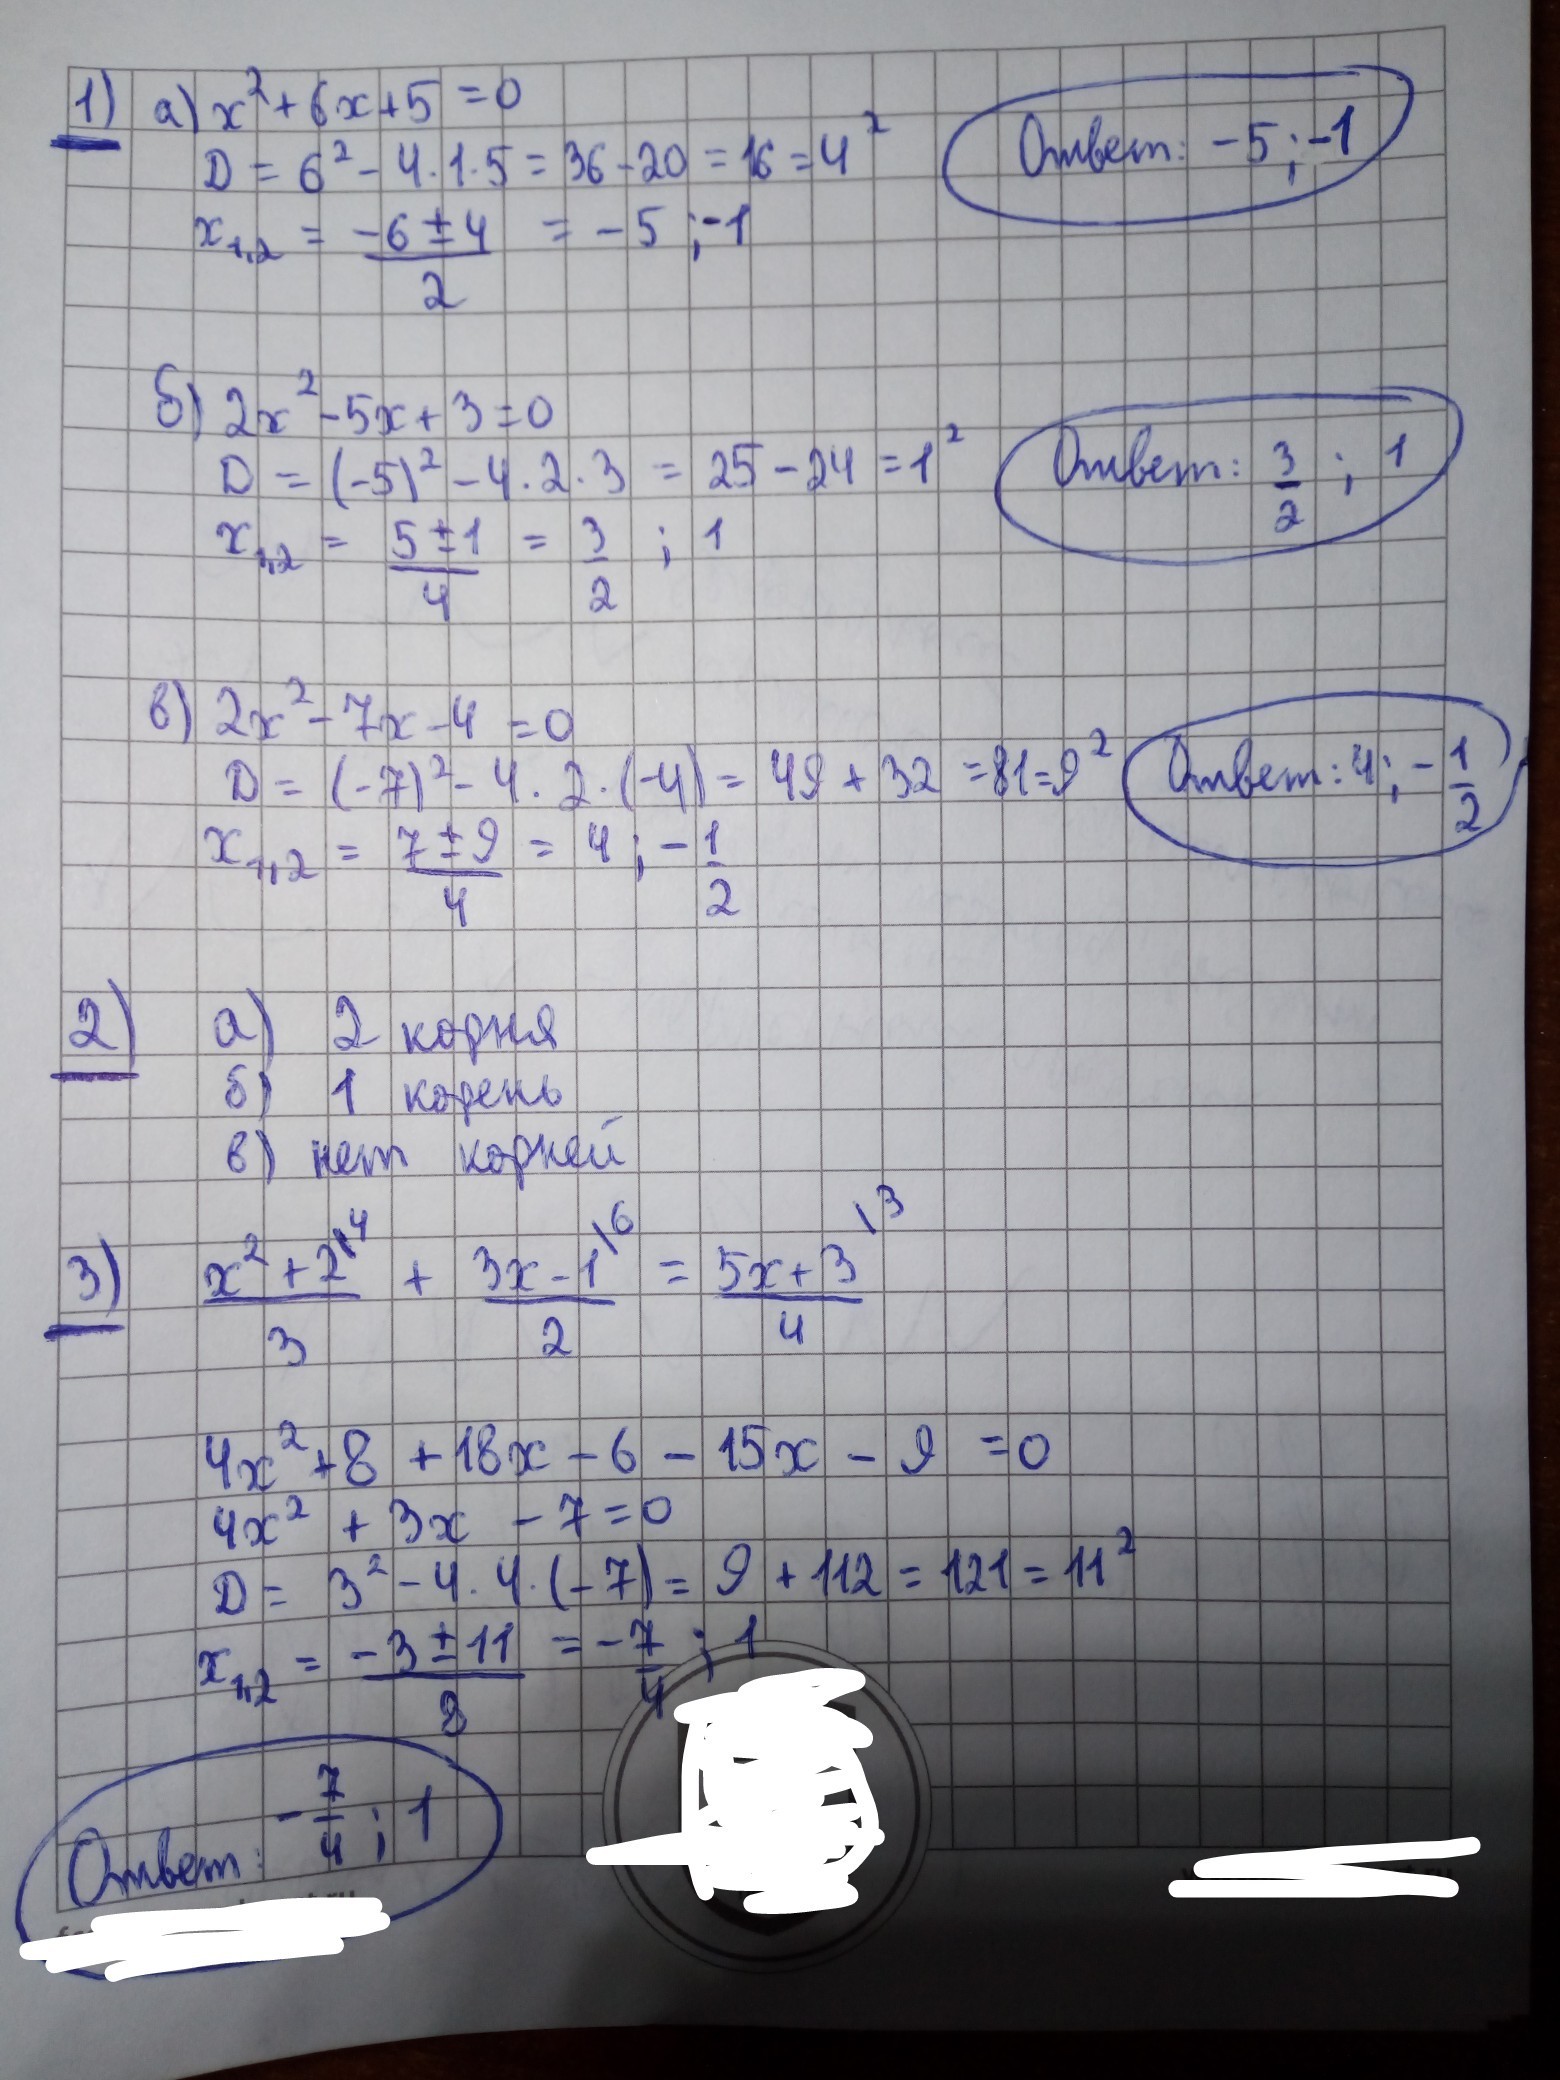 1) а) x² + 6x + 5 = 0
D = 6² - 4·1·5 = 36 - 20 = 16 = 4²
x₁,₂ = (-6 ± 4)/2 = -5 ; -1
Ответ: -5 ; -1
б) 2x² - 5x + 3 = 0
D = (-5)² - 4·2·3 = 25 - 24 = 1²
x₁,₂ = (5 ± 1)/4 = 3/2 ; 1
Ответ: 3/2 ; 1
в) 2x² - 7x - 4 = 0
D = (-7)² - 4·2·(-4) = 49 + 32 = 81 = 9²
x₁,₂ = (7 ± 9)/4 = 4 ; -1/2
Ответ: 4 ; -1/2
2) а) 2 корня
б) 1 корень
в) нет корней
3) (x² + 2)/3 \4 + (3x - 1)/2 \6 = (5x + 3)/4 \3
4x² + 8 + 18x - 6 - 15x - 9 = 0
4x² + 3x - 7 = 0
D = 3² - 4·4·(-7) = 9 + 112 = 121 = 11²
x₁,₂ = (-3 ± 11)/8 = -7/4 ; 1
Ответ: -7/4 ; 1